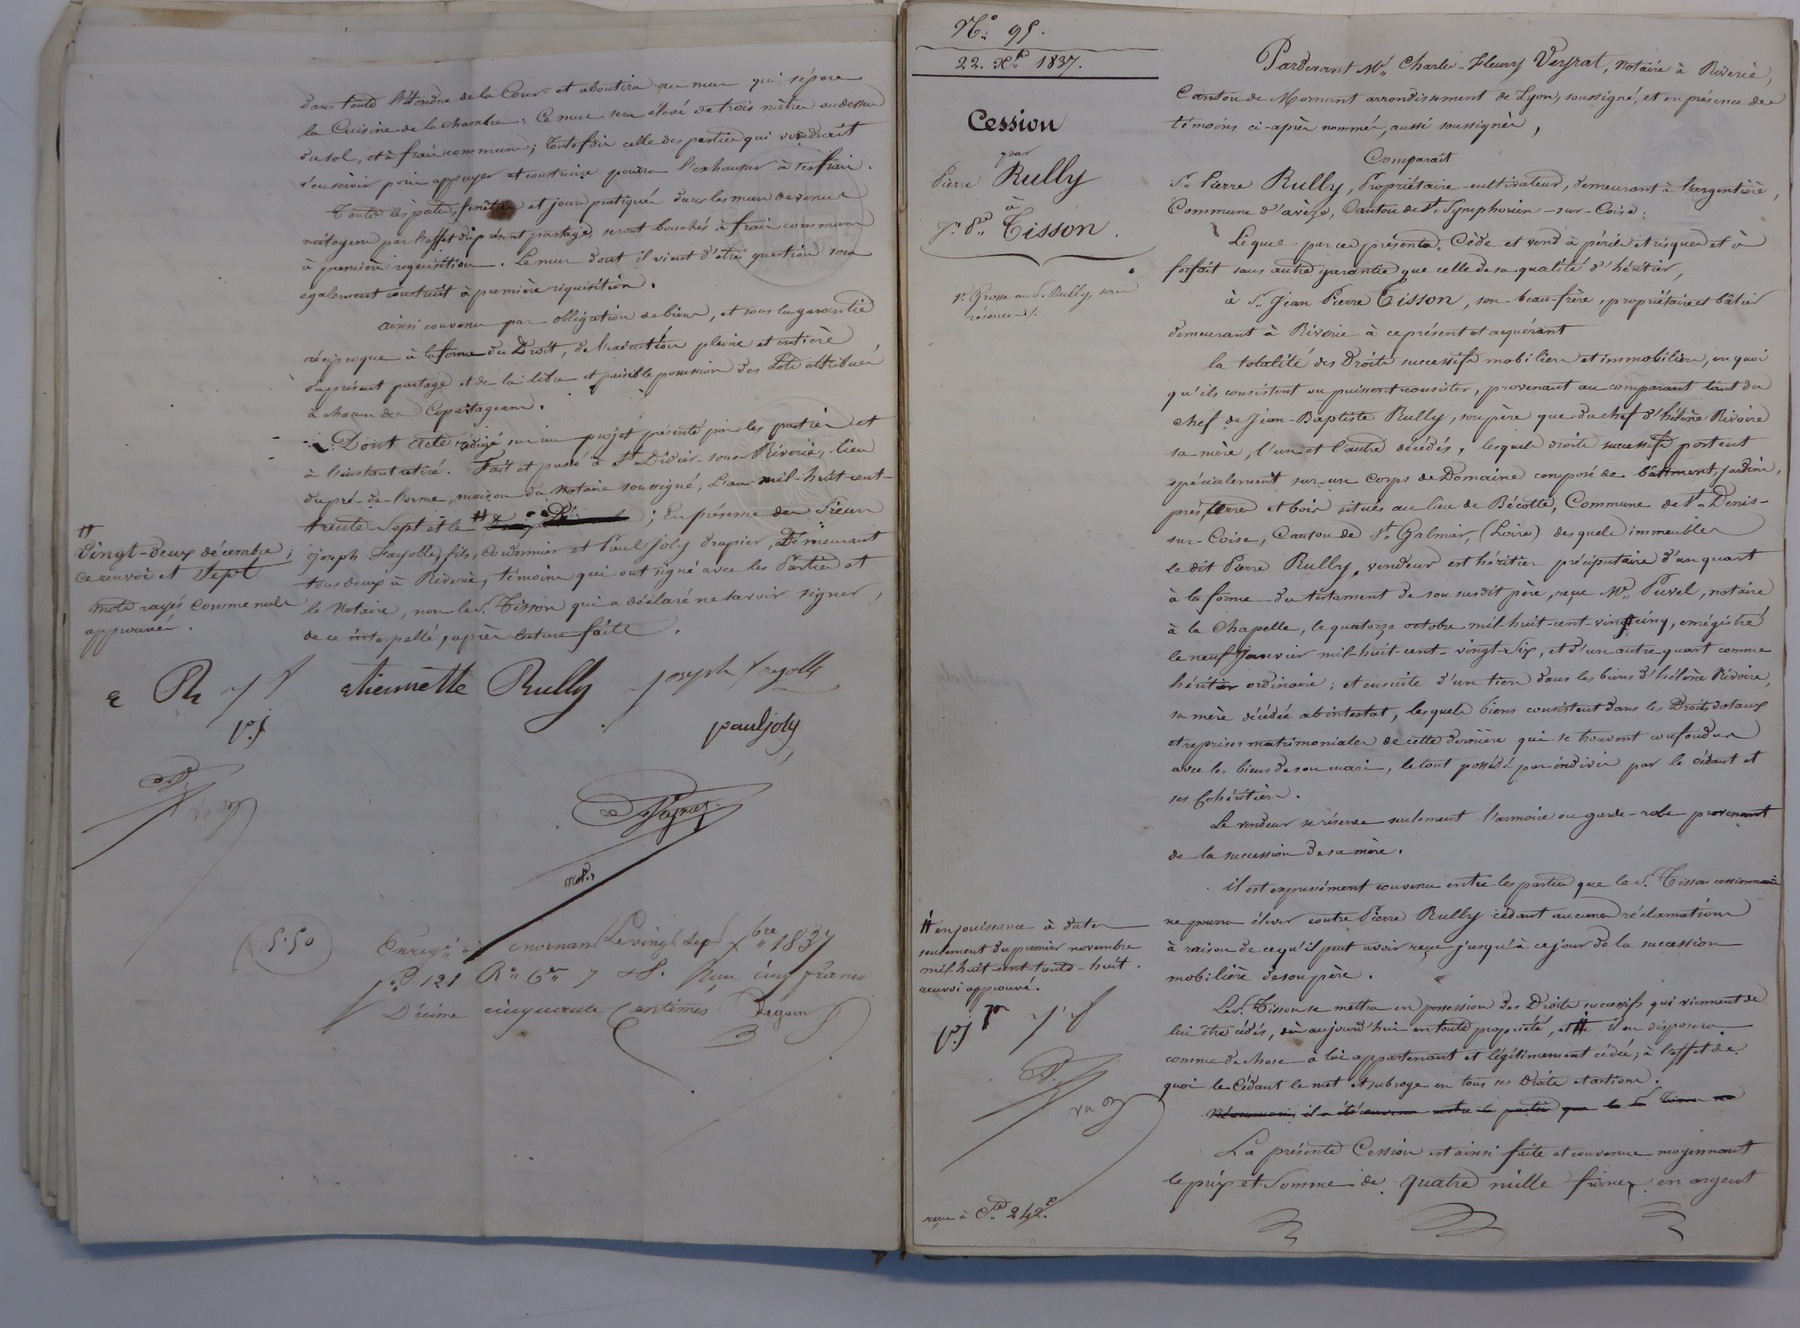 dans toute l'étendue de la Cour et aboutira au mur qui sépare
la Cuisine de la chambre; Ce mur sera élevé de trois mètres au dessus
du sol, et à frais communs; toutefois celle des parties qui voudrait
s'en servir pour appuyer et construire pourra l'exhausser à ses frais.
Toutes les portes, fenêtres et jours pratiqués dans les murs devenus
mitoyens par l'effet du présent partage, seront bouchés à frais communs
à première réquisition. Le mur dont il vient d'être question sera
également construit à première réquisition.
Ainsi convenu par obligation de biens, et sous la garantie
réciproque à la forme du Droit, de l'exécution pleine et entière
du présent partage et de la libre et paisible possession des Lots attribués
à chacun des Copartageans.
Dont Acte rédigé sur un projet présenté par les parties et
à l'instant retiré. Fait et passé à St. Didier-sous-Riverie, lieu
du pré-de-l'orme, maison du Notaire soussigné, L'an mil-huit-cent-
trente sept et le # ; En présence des Sieurs
joseph Fayolle, fils, Cordonnier et Paul Joly drapier, Demeurant
tous deux à Riverie, témoins qui ont signé avec les Parties et
le Notaire, non le Sr. Tisson qui a déclaré ne savoir signer,
de ce interpellé, après lecture faite.
#
Vingt-deux décembre;
ce renvoi et Sept
mots rayés comme nuls
approuvés.
e R j f
etiennette Rully
joseph fayolle
p.j
pauljoly
Veyrat
not.
5.50
Enregé à mornant Le vingt Sept xbre 1837
fo 121 Ro Ces 7 et 8. Reçu cinq francs
Décime cinquante Centimes
No. 95.
22. Xbre 1837.
Cession
par
Pierre Rully
à
Jn. Pre. Tisson.
1e. Grosse au S. Rully, sans
réserve
Pardevant Me. Charles-Fleury Veyrat, Notaire à Riverie,
Canton de Mornant arrondissement de Lyon, soussigné, et en présence des
témoins ci-après nommés, aussi soussignés,
Comparait
Sr. Pierre Rully, Propriétaire-cultivateur, demeurant à Largentière,
Commune d'avèze, Canton de St. Symphorien-sur-Coise;
Lequel par ces présentes, Cède et vend à périls et risques et à
forfait sans autre garantie que celle de sa qualité d'héritier,
à Sr. Jean Pierre Tisson, son beau-frère, propriétaire et bâtier
demeurant à Riverie à ce présent et acquérant
la totalité des Droits successifs mobiliers et immobiliers, en quoi
qu'ils consistent ou puissent consister, provenant au comparant tant du
chef de Jean-Baptiste Rully, son père que du chef d'hélène Rivoire
sa mère, l'un et l'autre décédés, lesquels droits successifs portent
spécialement sur un Corps de Domaine composé de bâtiment, jardin,
prés, terres et bois situés au lieu de Bécotte, Commune de St. Denis-
sur-Coise, Canton de St. Galmier, (Loire) desquels immeubles
le dit Pierre Rully, vendeur est héritier préciputaire d'un quart
à la forme du testament de son susdit père, reçu Me. Puvel, notaire
à la Chapelle, le quatorze octobre mil-huit-cent-vingt cinq, enregistré
le neuf Janvier mil-huit-cent-vingt-six, et d'un autre quart comme
héritier ordinaire; et ensuite d'un tiers dans les biens d'hélène Rivoire,
sa mère décédée ab intestat, lesquels biens consistent dans les Droits dotaux
et reprises matrimoniales de cette dernière qui se trouvent confondus
avec les biens de son mari, le tout possédé par indivis par le cédant et
ses Cohéritiers.
Le vendeur se réserve seulement l'armoire ou garde-robe provenant
de la succession de sa mère.
il est expressément convenu entre les parties que le S. Tisson cessionnaire
ne pourra élever contre Pierre Rully cédant aucunes réclamations
à raison de ce qu'il peut avoir reçu jusqu'à ce jour de la succession
mobilière de son père.
Le Sr. Tisson se mettra en possession des Droits successifs qui viennent de
lui être cédés, dès aujourd'hui en toute propriété, et # il en disposera
comme de chose à lui appartenant et légitimement cédée; à l'effet de
quoi le Cédant le met et subroge en tous ses Droits et actions.
Néanmoins il a été convenu entre les parties que le Sr Tisson ne
La présente Cession est ainsi faite et convenue moyennant
le prix et Somme de quatre mille francs en argent
# en jouissance à dater
seulement du premier novembre
mil-huit-cent-trente-huit.
renvoi approuvé.
p.j j f
reçu à Cté 242.